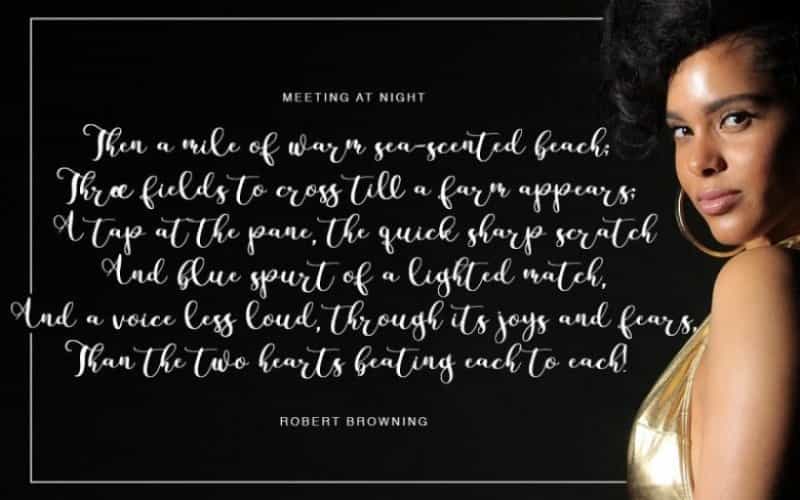 MEETING AT NIGHT
Then a mile of warm sea-scented beach;
Three fields to cross till a farm appears;
A tap at the pane, the quick sharp scratch
And blue spurt of a lighted match,
And a voice less loud, through its joys and fears,
Than the two hearts beating each to each!
ROBERT BROWNING